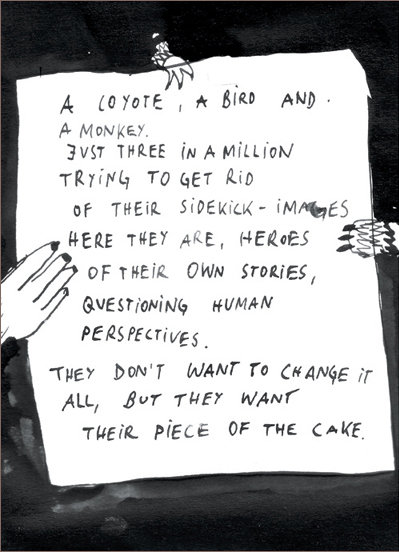 A COYOTE, A BIRD AND.
A MONKEY.
JUST THREE IN A MILLION
TRYING TO GET RID
OF THEIR SIDEKICK-IMAGES
HERE THEY ARE, HEROES
OF THEIR OWN STORIES,
QUESTIONING HUMAN
PERSPECTIVES.
THEY DON'T WANT TO CHANGE IT
ALL, BUT THEY WANT
THEIR PIECE OF THE CAKE.